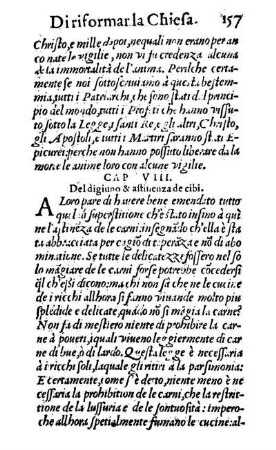 Di riformar la Chiesa. 157
Christo, e mille dapoi, ne quali non erano per an
co nate le vigilie, non vi fu credenza alcuna
de la immortalità de l'anima. Perilche certa-
mente se noi sottoscriuiamo à questa bestem-
mia, tutti i Patriarchi, che sono stati dal princi-
pio del mondo, tutti i Profeti che hanno vissu-
to sotto la Legge, i santi Re, e gli altri, Christo,
gli Apostoli, e tutti i Martiri saranno stati E-
picurei: perche non hanno possuto liberare da la
morte le anime loro con alcune vigilie.
CAP VIII.
Del digiuno & astinenza de cibi.
A Loro pare di havere bene emendato tutto
quel di superstitione ch'è stato insino à qui
ne l'astinẽza de le carni: insegnãdo ch'ella è sta
ta abbracciata per cagiõ di tẽperãza e nõ di abo
minatione. Se tutte le delicatezze fossero nel so
lo mãgiare de le carni forse potrebbe cõcedersi
ql ch'essi dicono: ma chi non sà che ne le cucine
de i ricchi allhora si fanno viuande molto piu
splẽdide e delicate, quãdo nõ si mãgia la carne?
Non fa di mestiero niente di prohibire la car
ne à poueri, i quali viueno leggiermente di car
ne di bue, ò di lardo. Questa legge è necessaria
à i ricchi soli, la quale gli ritiri à la parsimonia:
E certamente, come s'è detto, niente meno è ne
cessaria la prohibition de le carni, che la restrit-
tione de la lussuria e de le sontuosità: impero-
che allhora spetialmente fumano le cucine: al-